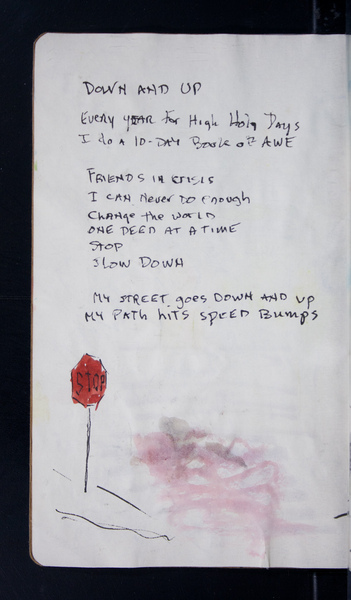 DOWN AND UP
EVERY YEAR FOR High Holy Days
I do A 10-DAY Book of AWE
FRIENDS IN CRISIS
I CAN Never Do Enough
Change the WORLD
ONE DEED AT A TIME
STOP
SLOW DOWN
MY STREET goes DOWN AND up
MY PATH hits SPEED Bumps
STOP